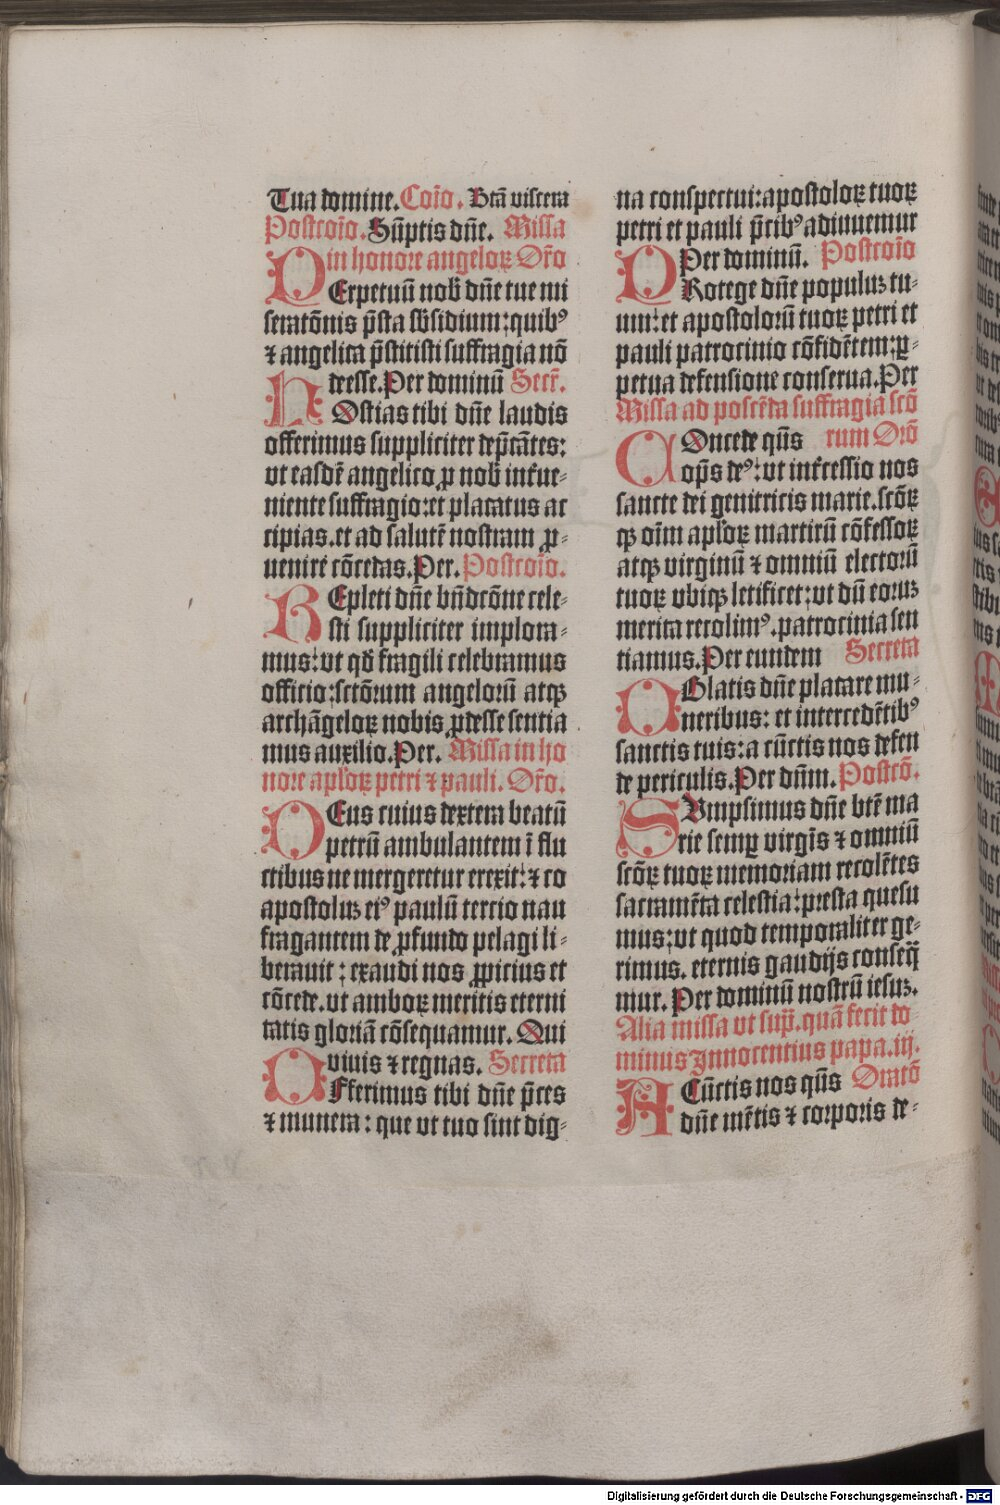 Tua domine. Coīo. Btā viscera
Postcoīo. Sūptis dn̄e. Missa
in honore angeloꝝ Or̄o
PErpetuū nob̄ dn̄e tue mi
seratōnis p̄sta sb̄sidium: quibꝰ
⁊ angelica p̄stitisti suffragia nō
deesse. Per dominū Secr̄.
HOstias tibi dn̄e laudis
offerimus suppliciter dep̄cātes:
vt easdē angelico ꝓ nob̄ int̄ue⸗
niente suffragio: et placatus ac
cipias. et ad salutē nostram ꝓ⸗
uenire cōcedas. Per. Postcoīo.
REpleti dn̄e bn̄dcōne cele⸗
sti suppliciter implora⸗
mus: vt qd̄ fragili celebramus
officio: sctōrum angelorū atqꝫ
archāgeloꝝ nobis ꝓdesse sentia
mus auxilio. Per. Missa in ho
nore apl̄oꝝ petri ⁊ pauli. Or̄o.
DEus cuius dextera beatū
petrū ambulantem ī flu
ctibus ne mergeretur erexit: ⁊ co
apostoluꝫ eiꝰ paulū tercio nau
fragantem de ꝓfundo pelagi li⸗
berauit: exaudi nos ꝓpicius et
cōcede. vt amboꝝ meritis eterni
tatis gloriā cōsequamur. Qui
viuis ⁊ regnas. Secreta
OFferimus tibi dn̄e p̄ces
⁊ munera: que vt tuo sint dig⸗
na conspectui: apostoloꝝ tuoꝝ
petri et pauli p̄cibꝰ adiuuemur
Per dominū. Postcoīo
PRotege dn̄e populuꝫ tu⸗
um: et apostolorū tuoꝝ petri et
pauli patrocinio cōfidētem: ꝑ⸗
petua defensione conserua. Per
Missa ad poscēda suffragia scō
rum Orō
COncede qūs
op̄s deꝰ: vt int̄cessio nos
sancte dei genitricis marie. scōꝝ
qꝫ oīm apl̄oꝝ martirū cōfessoꝝ
atqꝫ virginū ⁊ omniū electorū
tuoꝝ vbiqꝫ letificet: vt dū eoruꝫ
merita recolimꝰ. patrocinia sen
tiamus. Per eundem Secreta
OBlatis dn̄e placare mu⸗
neribus: et intercedētibꝰ
sanctis tuis: a cūctis nos defen
de periculis. Per dn̄m. Postcō.
SVmpsimus dn̄e btē ma
rie semꝑ virgīs ⁊ omniū
scōꝝ tuoꝝ memoriam recolētes
sacramēta celestia: presta quesu
mus: vt quod temporaliter ge⸗
rimus. eternis gaudijs conseq̄
mur. Per dominū nostrū iesuꝫ.
Alia missa vt sup̄. quā fecit do
minus Jnnocentius papa. iij.
Oratō
A Cūctis nos qūs
dn̄e mētis ⁊ corporis de⸗
Digitalisierung gefördert durch die Deutsche Forschungsgemeinschaft - DFG